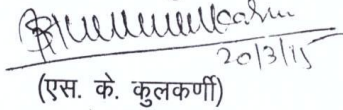 20/3/15
(एस. के. कुलकर्णी)